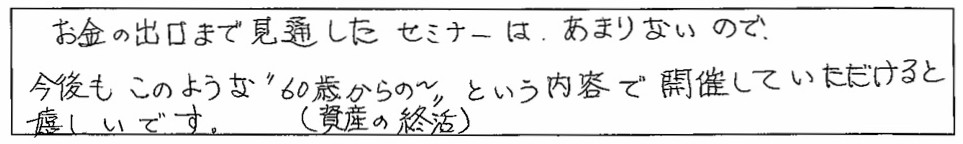 お金の出口まで見通したセミナーは、あまりないので、
今後もこのような〝60歳からの〜〟という内容で開催していただけると
嬉しいです。　（資産の終活）